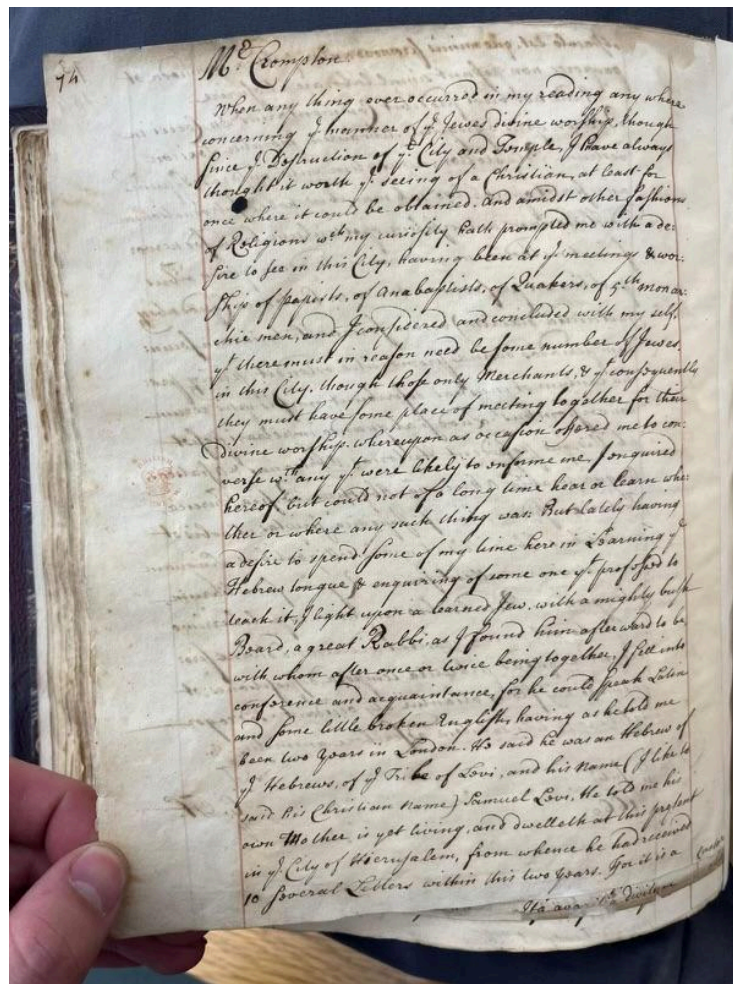 74
Mr Crompton.
When any thing ever occurred in my reading any where
concerning ye manner of ye Jewes divine worship, though
since ye Destruction of ye City and Temple, I have always
thought it worth ye seeing of a Christian, at least for
once where it could be obtained. and amidst other fashions
of Religions wch my curiosity hath prompted me with a de:
sire to see in this City, having been at ye meetings & wor:
ship of papists, of Anabaptists, of Quakers, of 5th monar:
chie men, and I considered and concluded with my self.
yt there must in reason need be some number of Jewes
in this City, though those only Merchants, & yt consequently
they must have some place of meeting together for their
divine worship. whereupon as occasion offered me to con:
verse wth any yt were likely to enforme me, I enquired
hereof but could not of a long time hear or learn whe:
ther or where any such thing was: But lately having
a desire to spend some of my time here in Learning ye
Hebrew tongue & enquiring of some one yt professed to
teach it, I light upon a learned Jew, with a mighty bush
Beard, a great Rabbi, as I found him afterward to be
with whom after once or twice being together, I fell into
conference and acquaintance, for he could speak Latin
and some little broken English, having as he told me
been two years in London. He said he was an Hebrew of
ye Hebrews, of ye Tribe of Levi, and his name (I like to
said his Christian name) Samuel Levi. He told me his
own Mother is yet living, and dwelleth at this present
in ye City of Hierusalem, from whence he had received
10 several Letters within this two years. For it is a